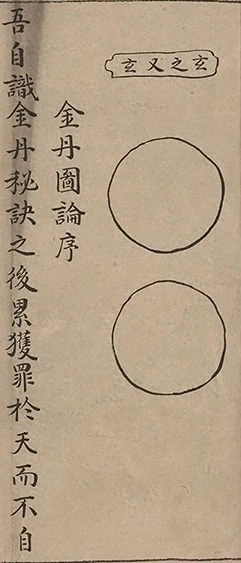 玄之又玄
金丹圖論序
吾自識金丹秘訣之後累獲罪於天而不自